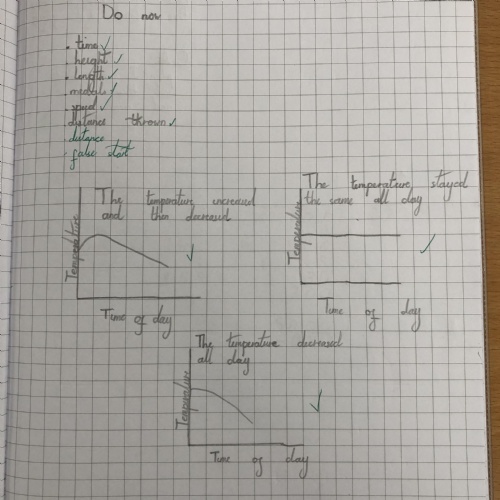 Do now
. time ✓
. height ✓
. length ✓
. medals ✓
. speed ✓
distance thrown ✓
. distance
. false start
The temperature increased
and then decreased
Temperature
Time of day
The temperature stayed
the same all day
Temperature
Time of day
The temperature decreased
all day
Temperature
Time of day